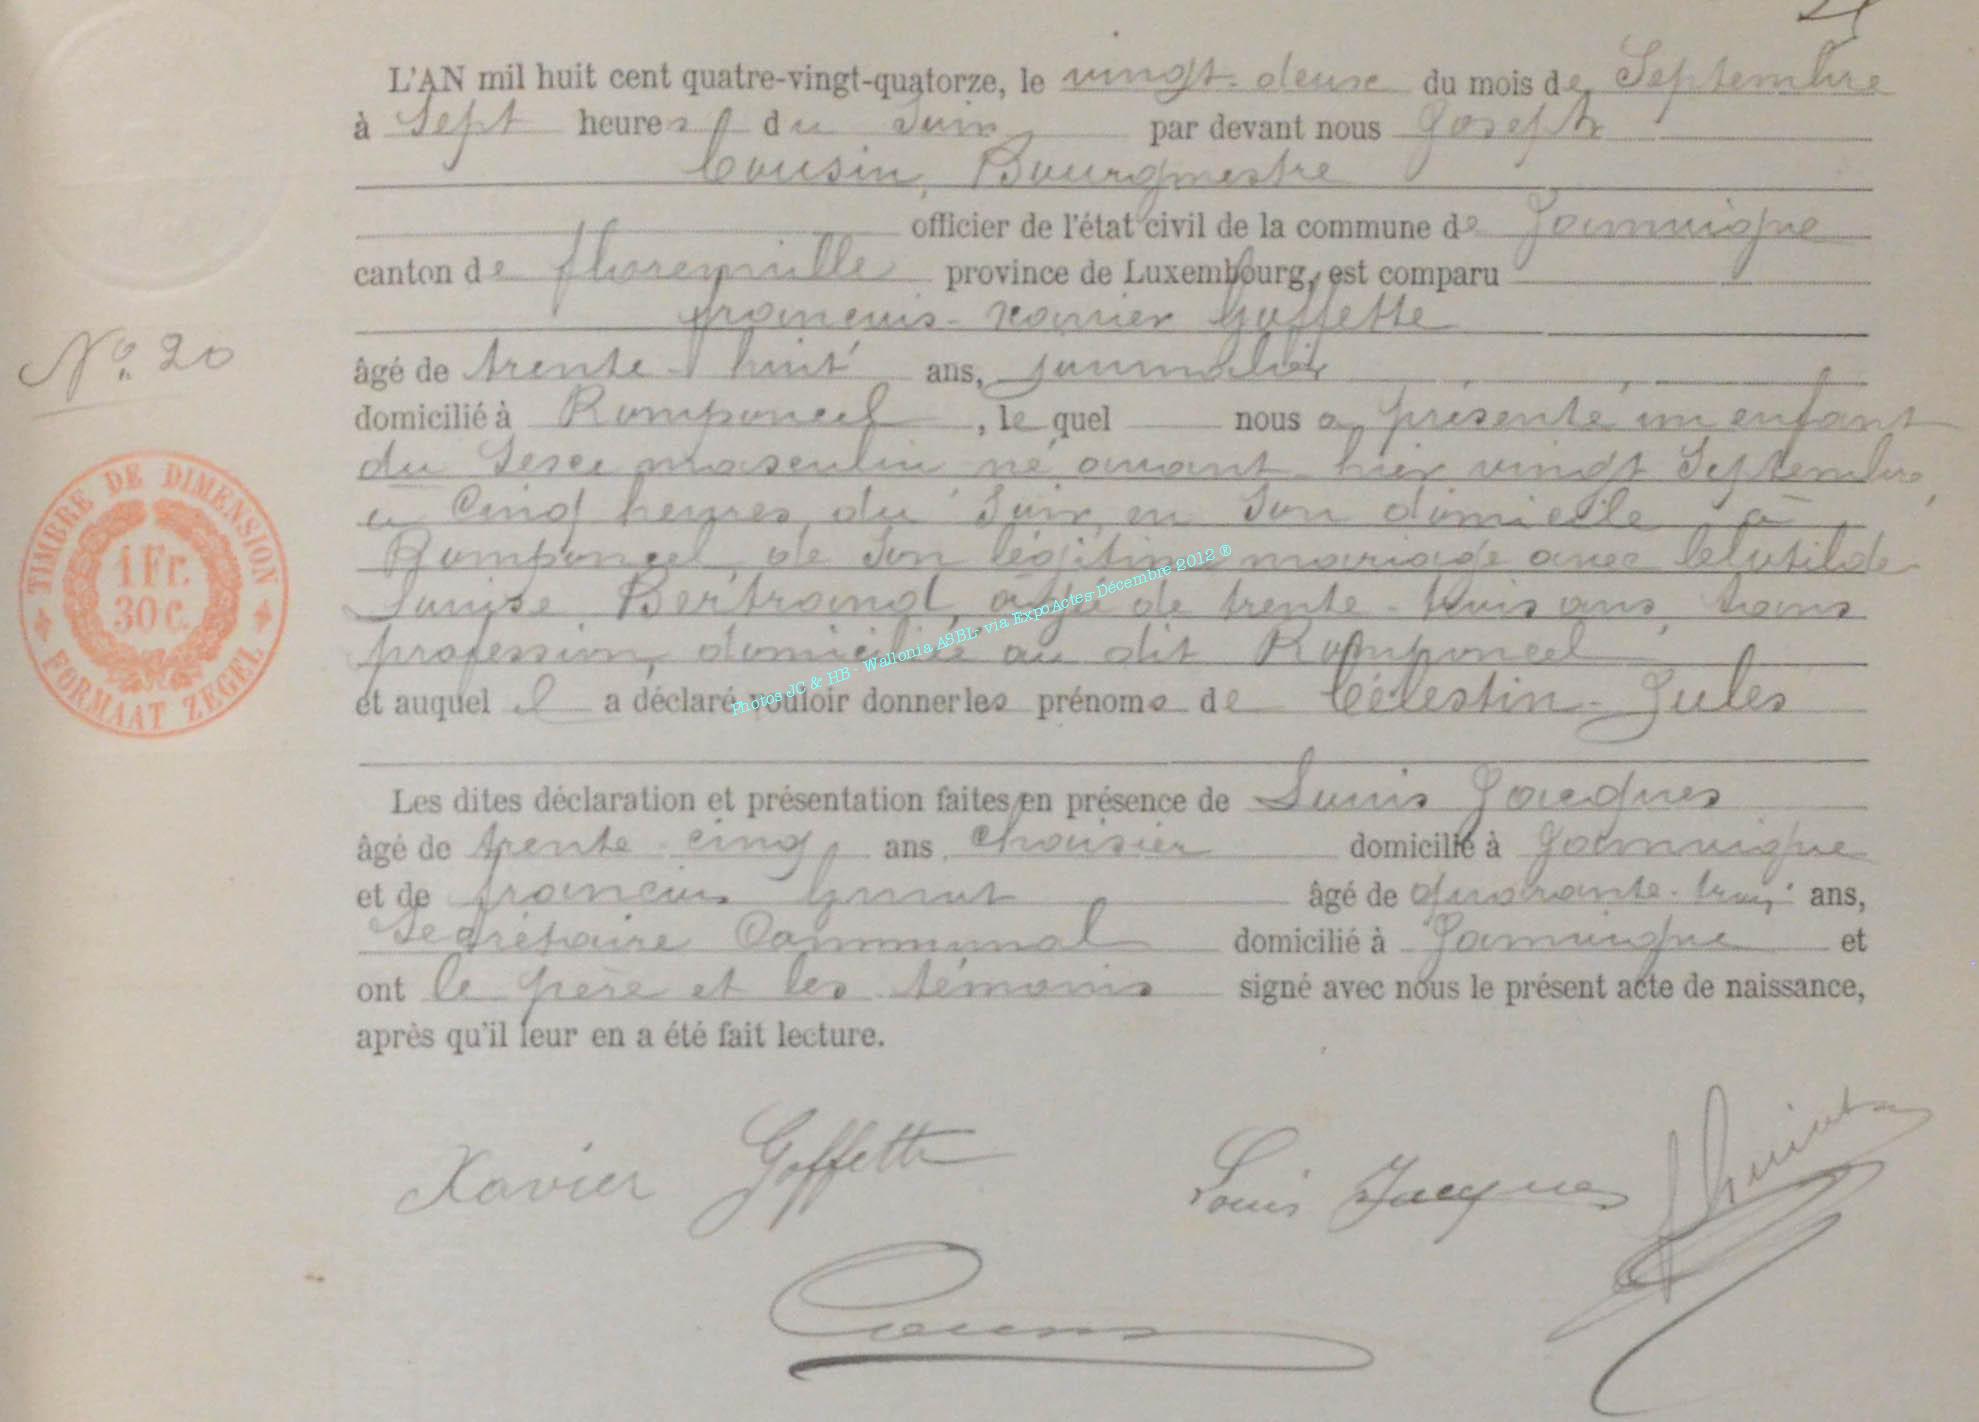 L'AN mil huit cent quatre-vingt-quatorze, le vingt-deux du mois de Septembre
à Sept heures du Soir par devant nous Joseph
Cousin, Bourgmestre
officier de l'état civil de la commune de Jamoigne
canton de florenville province de Luxembourg, est comparu
françois-xavier Goffette
N° 20
âgé de trente-huit ans, journalier
domicilié à Romponcel, le quel nous a présenté un enfant
du Sexe masculin né avant hier vingt Septembre
a Cinq heures du Soir, en Son domicile à
Romponcel, de Son légitime mariage avec Clotilde
Louise Bertrand, âgé de trente-trois ans, Sans
profession, domicilié au dit Romponcel
et auquel il a déclaré vouloir donner les prénoms de Célestin-Jules
Les dites déclaration et présentation faites en présence de Louis Jacques
âgé de trente-cinq ans Choisier domicilié à Jamoigne
et de françois âgé de quarante-trois ans,
Secrétaire Communal domicilié à Jamoigne et
ont le père et les témoins signé avec nous le présent acte de naissance,
après qu'il leur en a été fait lecture.
TIMBRE DE DIMENSION
1 Fr.
30 C.
FORMAAT ZEGEL
Photos JC & HB - Wallonia ASBL- via ExpoActes-Décembre 2012 ®
Xavier Goffette
Louis Jacques
Cousin